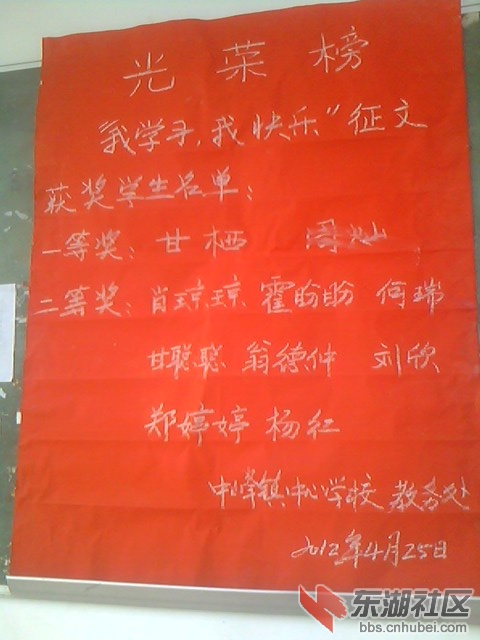 光菜榜
“我学习,我快乐”征文
获奖学生名单:
一等奖:甘栖 灿
二等奖:肖琼琼 霍盼盼 何瑞
甘聪聪 翁德仲 刘欣
郑婷婷 杨红
中峰镇中心学校 教务处
2012年4月25日
东湖社区
bbs.cnhubei.com